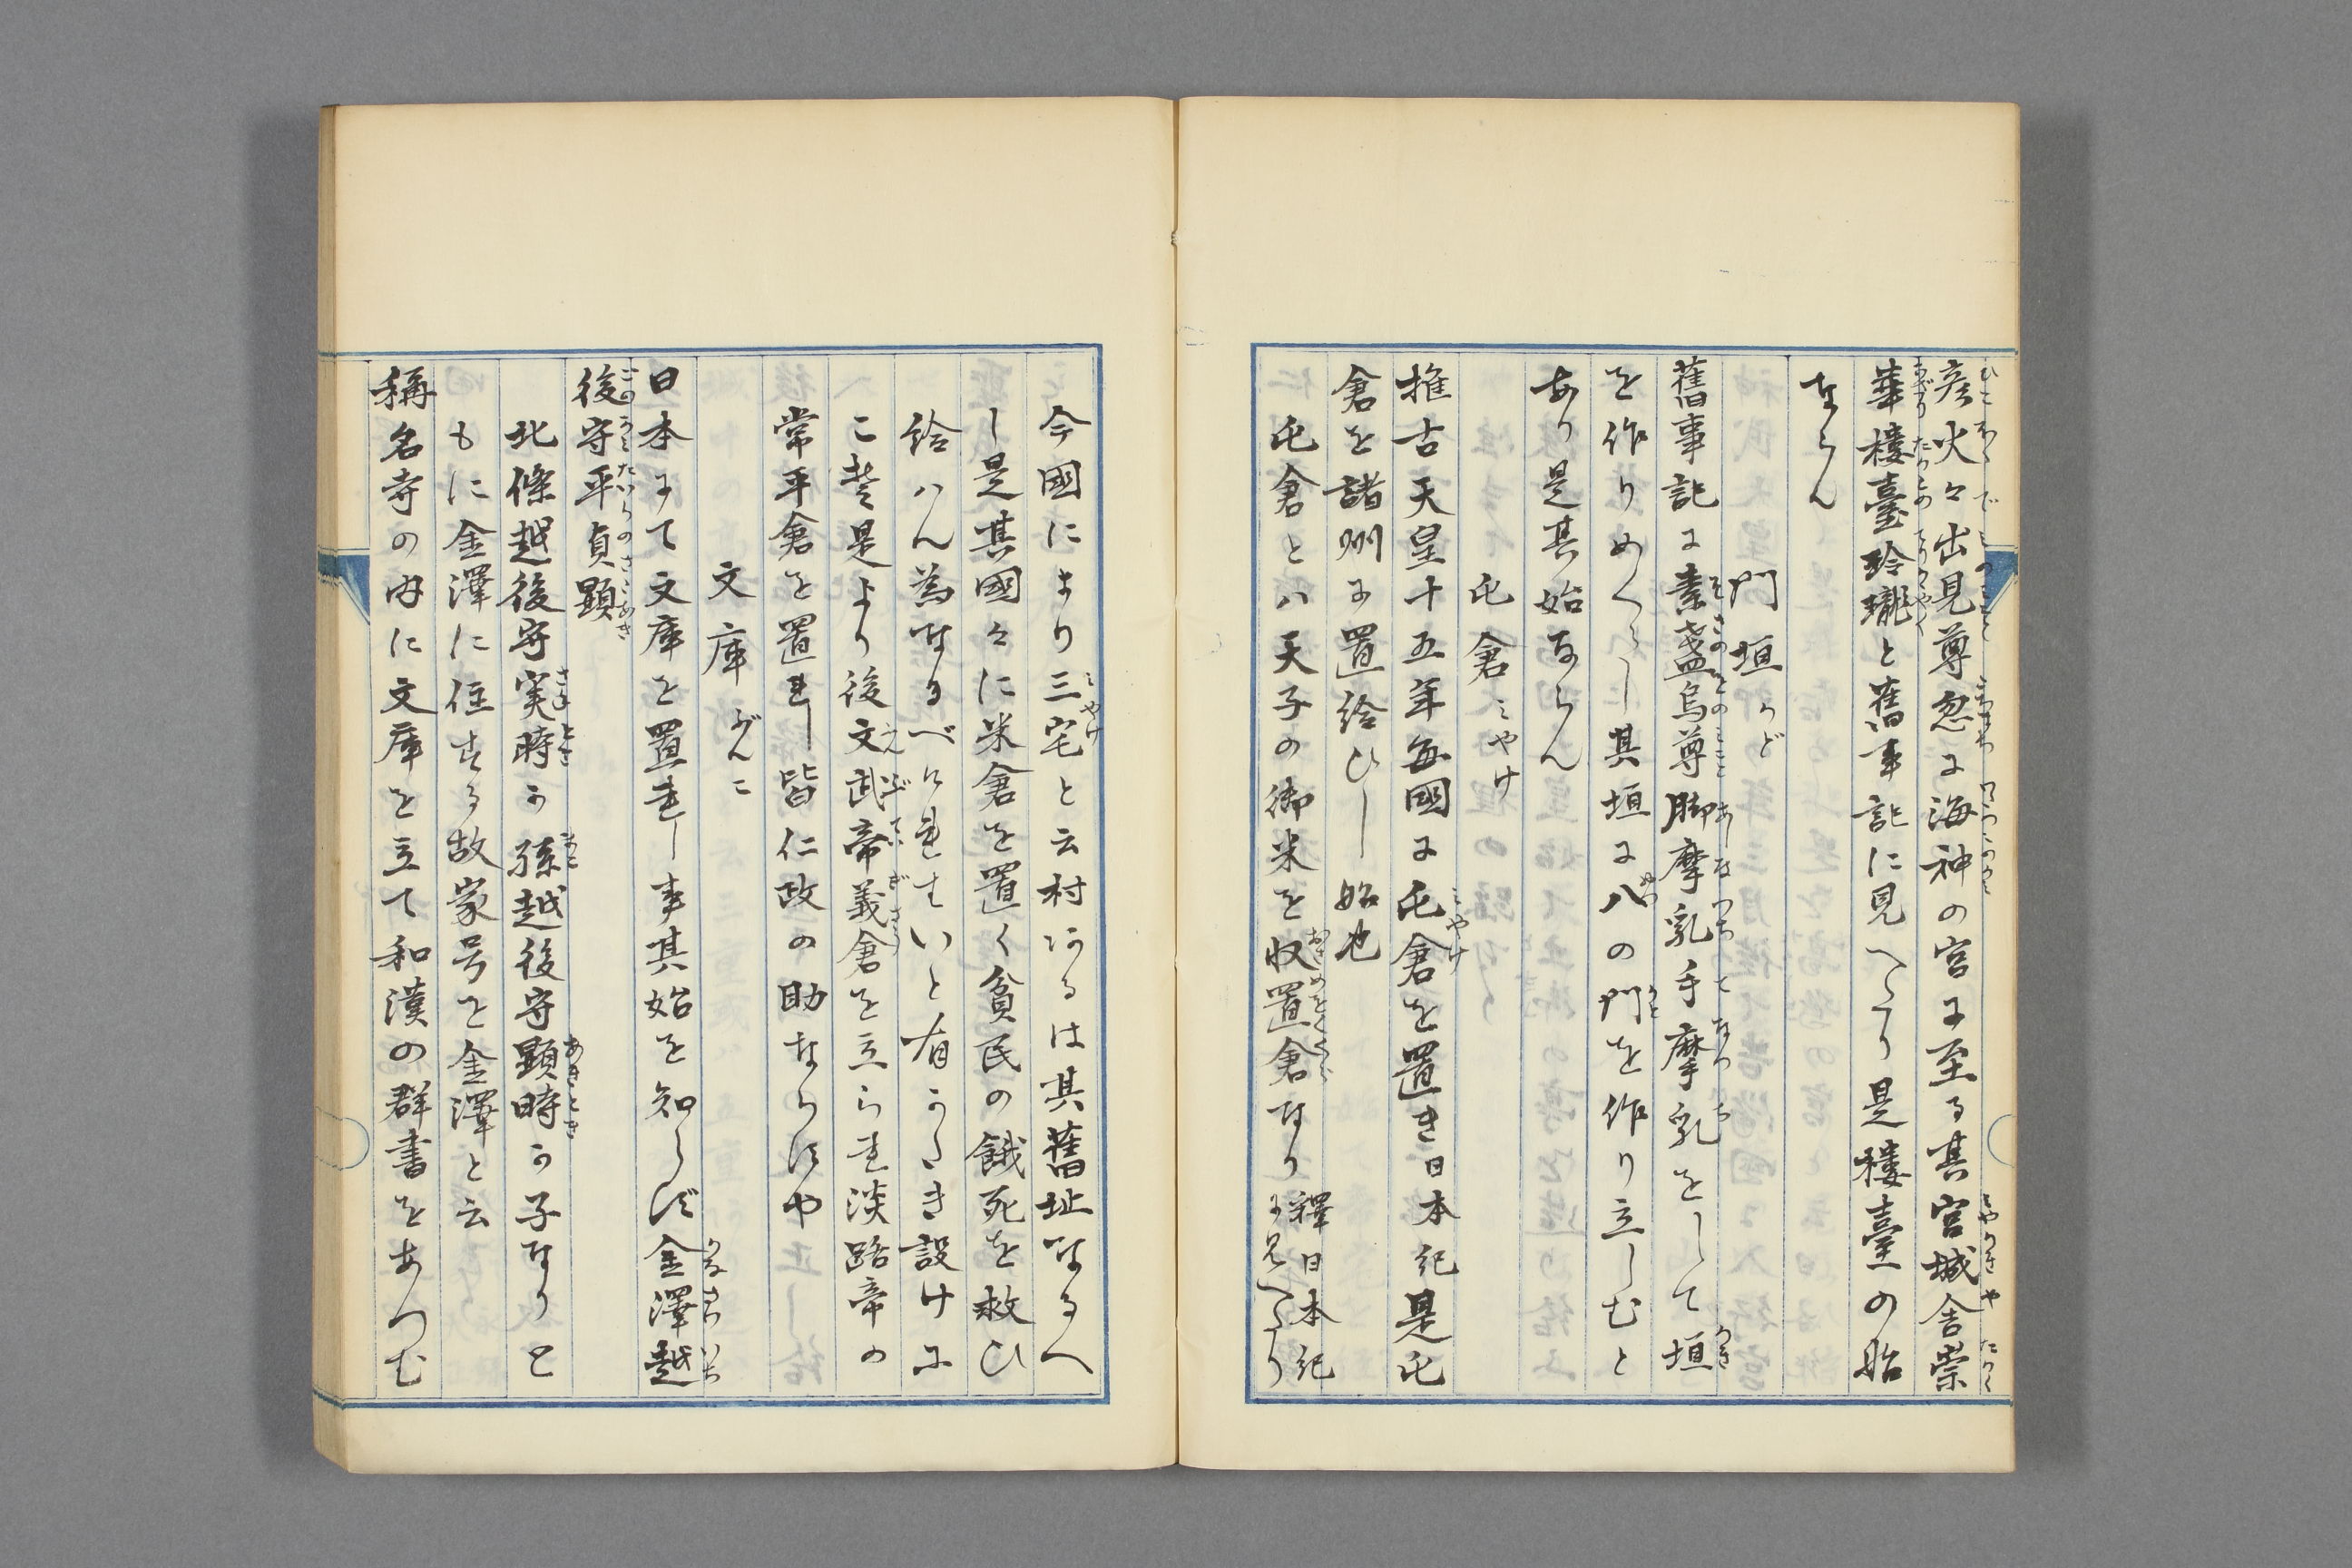 彦火々出見尊忽に海神の宮に至る其宮城舎崇
華樓臺玲瓏と舊事記に見へたり是樓臺の始
ならん
門垣 かど
舊事記に素盞烏尊脚摩乳手摩乳をして垣
を作りめくらし其垣に八の門を作り立しむと
あり是其始ならん
屯倉 ミやけ
推古天皇十五年毎國に屯倉を置き日本紀是屯
倉を諸州に置給ひし始也
屯倉とハ天子の御米を収置倉なり 釋日本紀に見へたり
今國にまり三宅と云村あるは其舊址なるへ
し是其國々に米倉を置く貧民の餓死を救ひ
給ハん為なるべけれせいと有かたき設けに
こそ是より後文武帝義倉を立られ淡路帝の
常平倉を置れし皆仁政の助ならすや
文庫 ぶんこ
日本にて文庫を置れし事其始を知らず金澤越
後守平貞顕
北條越後守実時か孫越後守顕時か子なりと
もに金澤に住する故家号を金澤と云
稱名寺の内に文庫を立て和漢の群書をあつむ